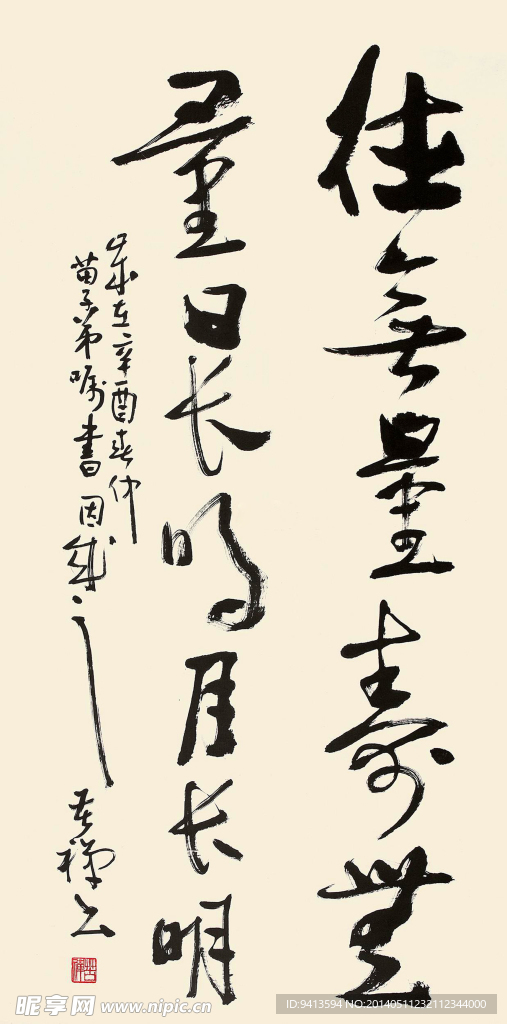 無量寿無
量日长明月长明
岁在辛酉春仲
苗子弟嘱书因成之 苦禅书
昵享网 www.nipic.cn
ID:9413594 NO:20140511232112344000